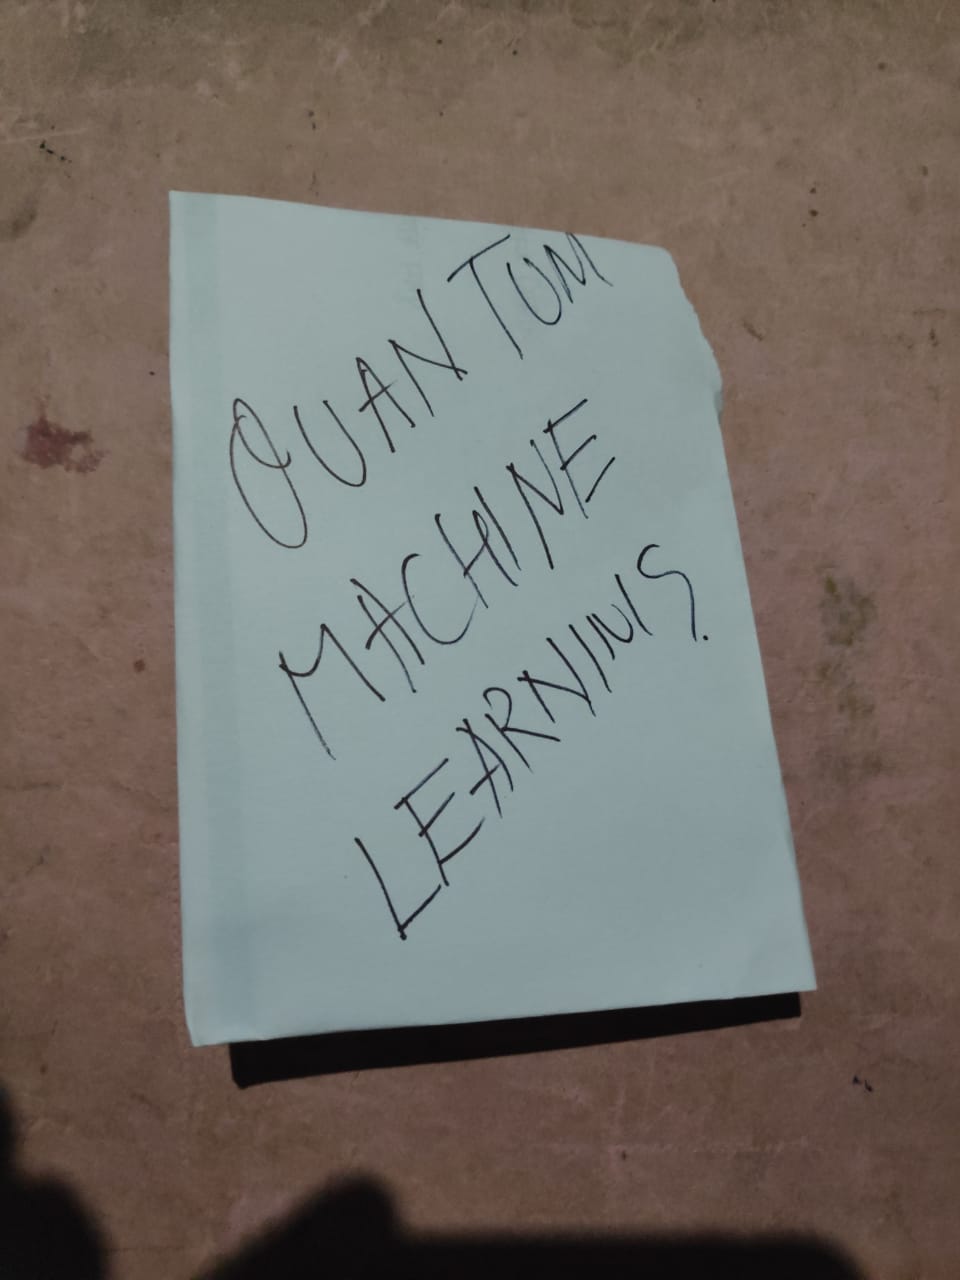 QUANTUM
MACHINE
LEARNING.